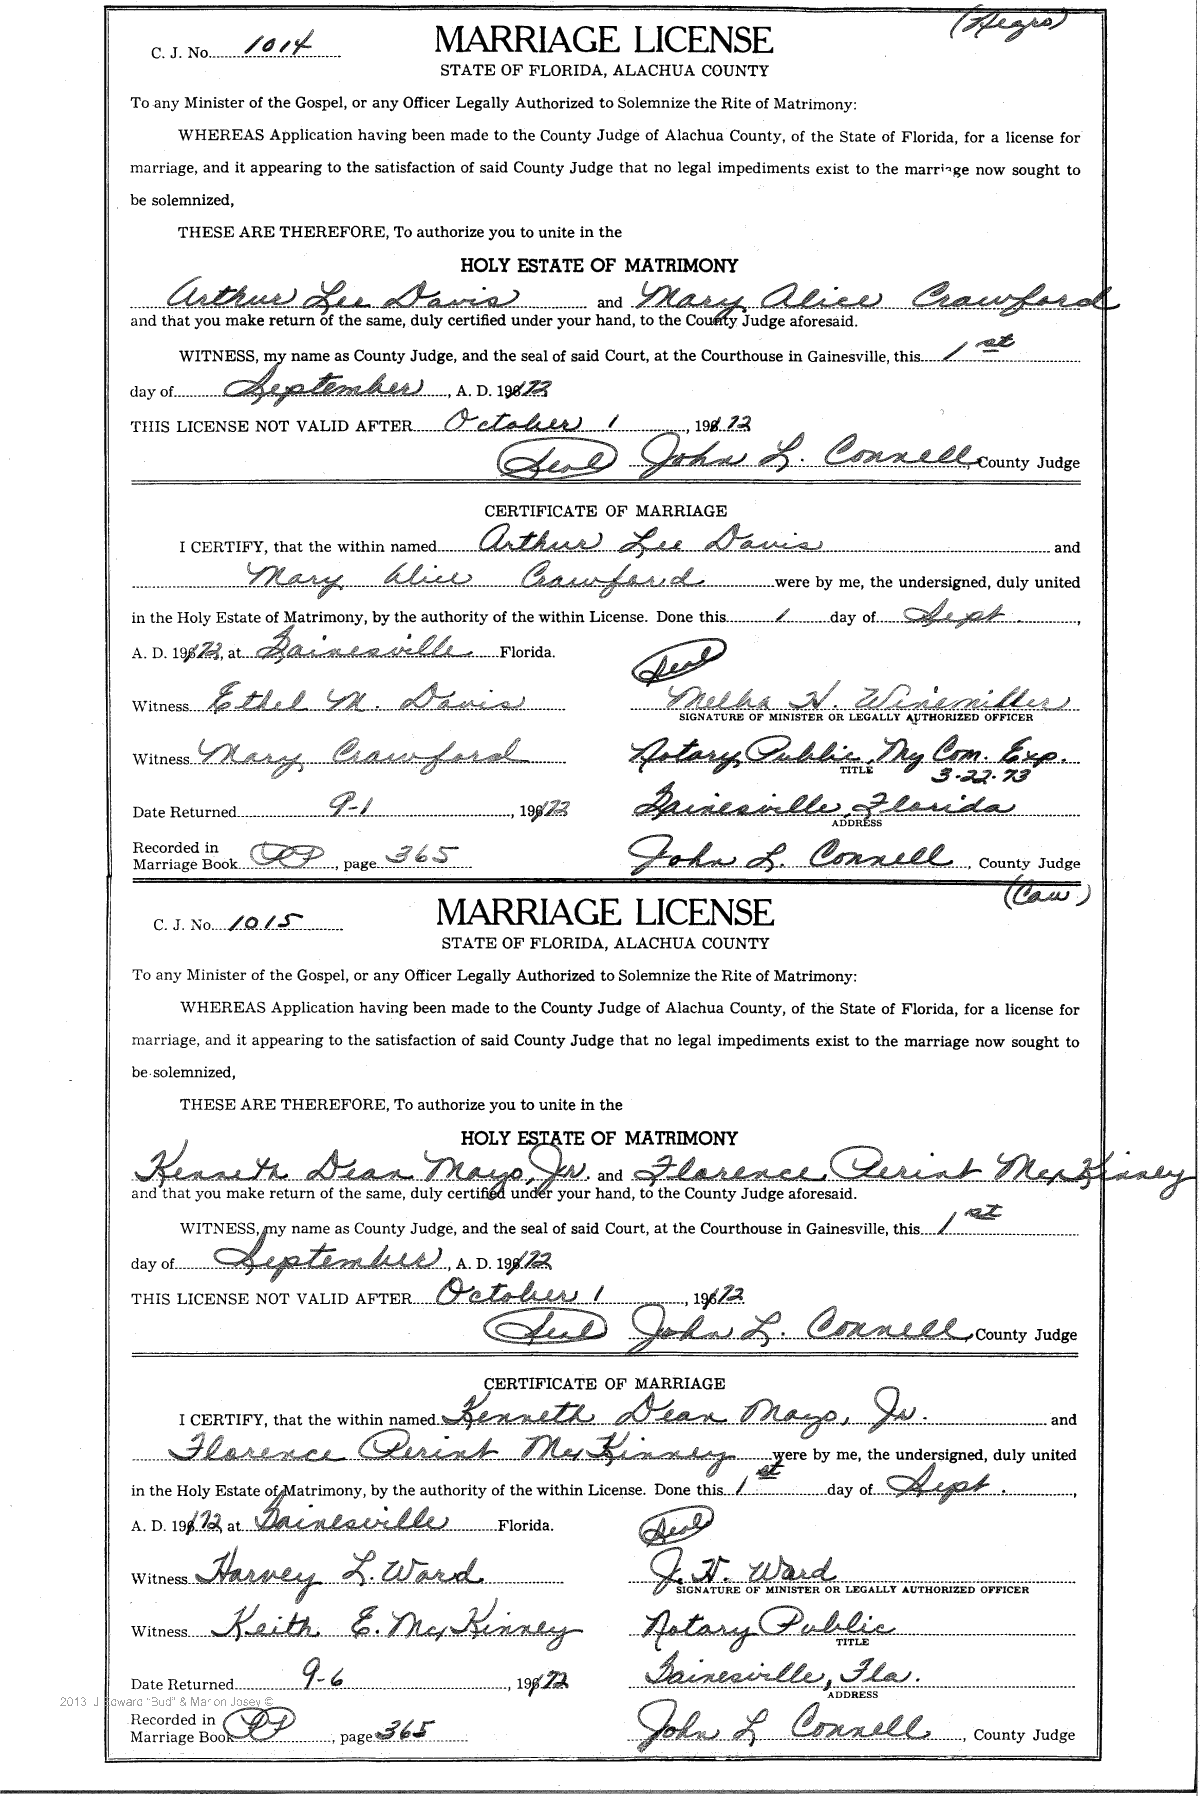 (Negro)
C. J. No. 1014
MARRIAGE LICENSE
STATE OF FLORIDA, ALACHUA COUNTY
To any Minister of the Gospel, or any Officer Legally Authorized to Solemnize the Rite of Matrimony:
WHEREAS Application having been made to the County Judge of Alachua County, of the State of Florida, for a license for
marriage, and it appearing to the satisfaction of said County Judge that no legal impediments exist to the marriage now sought to
be solemnized,
THESE ARE THEREFORE, To authorize you to unite in the
HOLY ESTATE OF MATRIMONY
Arthur Lee Davis and Mary Alice Crawford
and that you make return of the same, duly certified under your hand, to the County Judge aforesaid.
WITNESS, my name as County Judge, and the seal of said Court, at the Courthouse in Gainesville, this 1st
day of September, A. D. 1972
THIS LICENSE NOT VALID AFTER October 1, 1972
(Seal) John L. Connell, County Judge
CERTIFICATE OF MARRIAGE
I CERTIFY, that the within named Arthur Lee Davis and
Mary Alice Crawford were by me, the undersigned, duly united
in the Holy Estate of Matrimony, by the authority of the within License. Done this 1 day of Sept.,
A. D. 1972, at Gainesville Florida. (Seal)
Witness Ethel M. Davis Melba H. Winemiller
SIGNATURE OF MINISTER OR LEGALLY AUTHORIZED OFFICER
Witness Mary Crawford Notary Public, My Com. Exp.
TITLE 3-22-73
Date Returned 9-1, 1972 Gainesville, Florida
ADDRESS
Recorded in
Marriage Book PP, page 365 John L. Connell, County Judge
(Cau)
C. J. No. 1015
MARRIAGE LICENSE
STATE OF FLORIDA, ALACHUA COUNTY
To any Minister of the Gospel, or any Officer Legally Authorized to Solemnize the Rite of Matrimony:
WHEREAS Application having been made to the County Judge of Alachua County, of the State of Florida, for a license for
marriage, and it appearing to the satisfaction of said County Judge that no legal impediments exist to the marriage now sought to
be solemnized,
THESE ARE THEREFORE, To authorize you to unite in the
HOLY ESTATE OF MATRIMONY
Kenneth Dean Mayo, Jr. and Florence Perint McKinney
and that you make return of the same, duly certified under your hand, to the County Judge aforesaid.
WITNESS, my name as County Judge, and the seal of said Court, at the Courthouse in Gainesville, this 1st
day of September, A. D. 1972
THIS LICENSE NOT VALID AFTER October 1, 1972
(Seal) John L. Connell, County Judge
CERTIFICATE OF MARRIAGE
I CERTIFY, that the within named Kenneth Dean Mayo, Jr. and
Florence Perint McKinney were by me, the undersigned, duly united
in the Holy Estate of Matrimony, by the authority of the within License. Done this 1st day of Sept.,
A. D. 1972, at Gainesville Florida. (Seal)
Witness Harvey L. Ward J. H. Ward
SIGNATURE OF MINISTER OR LEGALLY AUTHORIZED OFFICER
Witness Keith E. McKinney Notary Public
TITLE
Date Returned 9-6, 1972 Gainesville, Fla.
ADDRESS
2013 J Edward "Bud" & Marion Josey ©
Recorded in
Marriage Book PP, page 365 John L. Connell, County Judge